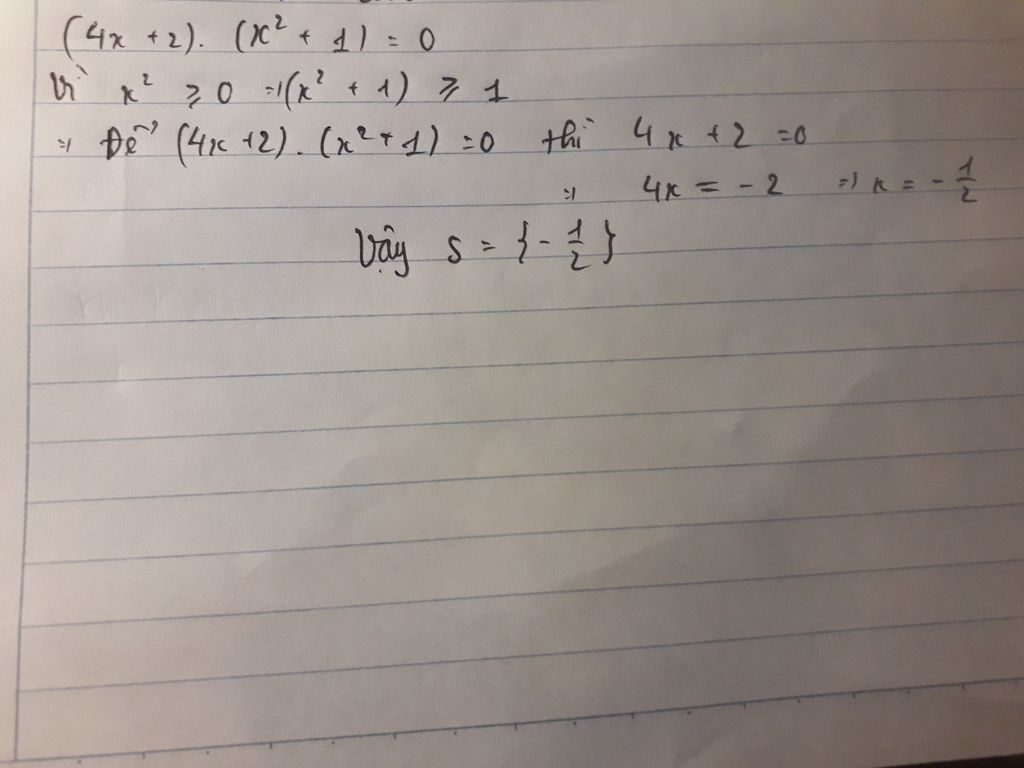 (4x + 2). (x² + 1) = 0
Vì x² ⩾ 0 => (x² + 1) ⩾ 1
=> Để (4x + 2). (x² + 1) = 0 thì 4x + 2 = 0
=> 4x = - 2 => x = - 1/2
Vậy S = {- 1/2}